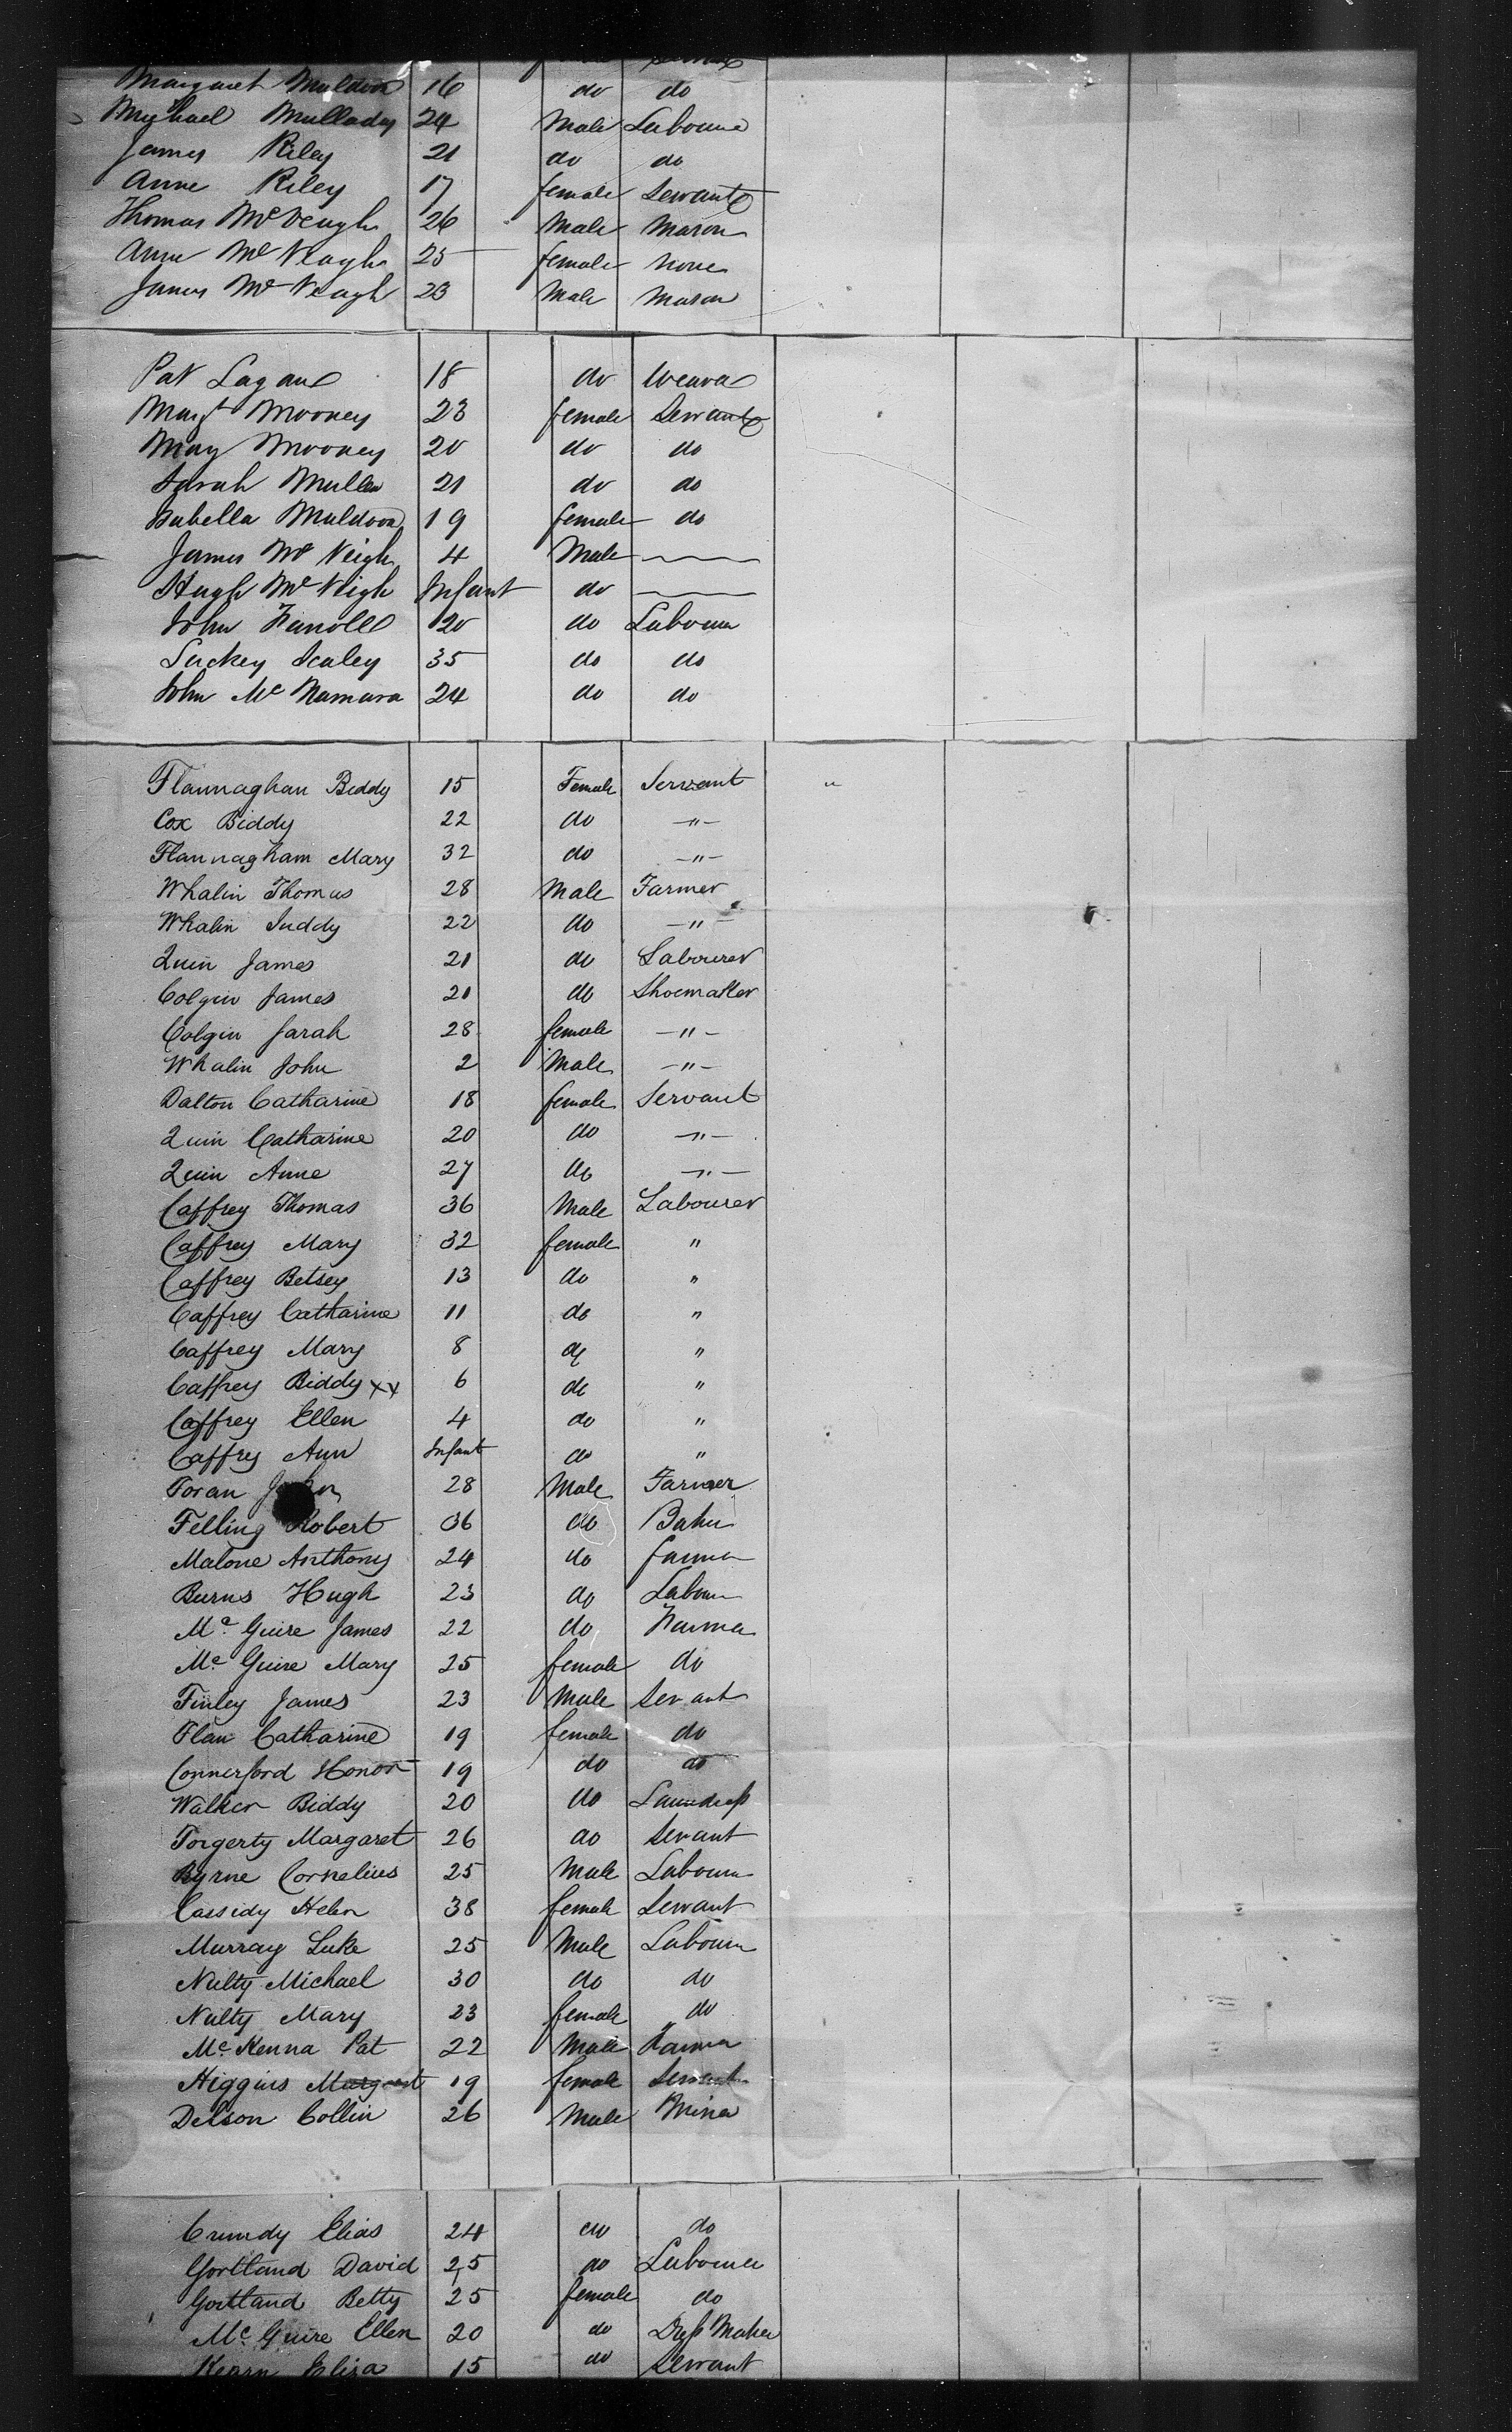 Margaret Muldoon 16 do do
Michael Mullady 24 Male Labourer
James Riley 21 do do
Anne Riley 17 female Servant
Thomas Mc Veagh 26 Male Mason
Anne Mc Veagh 25 female None
James Mc Veagh 23 Male Mason
Pat Lagane 18 do Weaver
Margt Mooney 23 female Servant
Mary Mooney 20 do do
Sarah Mullen 21 do do
Isabella Muldoon 19 female do
James Mc Veigh 4 Male
Hugh Mc Veigh Infant do
John Farrell 20 do Labourer
Luckey Scaley 35 do do
John Mc Namara 24 do do
Flannaghan Biddy 15 Female Servant "
Cox Biddy 22 do -"-
Flannagham Mary 32 do -"-
Whalin Thomas 28 Male Farmer
Whalin Juddy 22 do -"-
Quin James 21 do Labourer
Colgin James 21 do Shoemaker
Colgin Sarah 28 female -"-
Whalin John 2 Male -"-
Dalton Catharine 18 female Servant
Quin Catharine 20 do -"-
Quin Anne 27 do -"-
Caffrey Thomas 36 Male Labourer
Caffrey Mary 32 female "
Caffrey Betsey 13 do "
Caffrey Catharine 11 do "
Caffrey Mary 8 do "
Caffrey Biddy xx 6 do "
Caffrey Ellen 4 do "
Caffry Ann Infant do "
Foran John 28 Male Farmer
Felling Robert 36 do Baker
Malone Anthony 24 do farmer
Burns Hugh 23 do Labourer
Mc Guire James 22 do Farmer
Mc Guire Mary 25 female do
Finley James 23 Male Servant
Flan Catharine 19 female do
Connerford Honor 19 do do
Walker Biddy 20 do Laundress
Forgerty Margaret 26 do Servant
Byrne Cornelius 25 Male Labourer
Cassidy Helen 38 female Servant
Murray Luke 25 Male Labourer
Nulty Michael 30 do do
Nulty Mary 23 female do
Mc Kenna Pat 22 Male Farmer
Higgins Margaret 19 female Servant
Delson Collin 26 Male Miner
Crundy Elias 24 do do
Gortland David 25 do Labourer
Gortland Betty 25 female do
Mc Guire Ellen 20 do Dress Maker
Kearn Eliza 15 do Servant